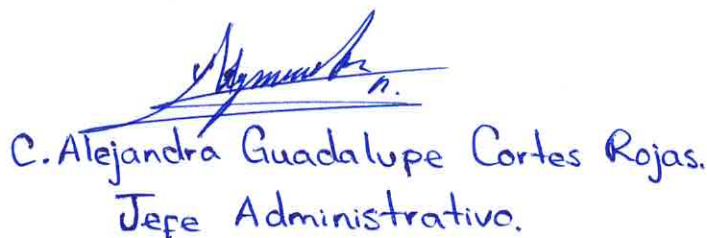 C. Alejandra Guadalupe Cortes Rojas.
Jefe Administrativo.